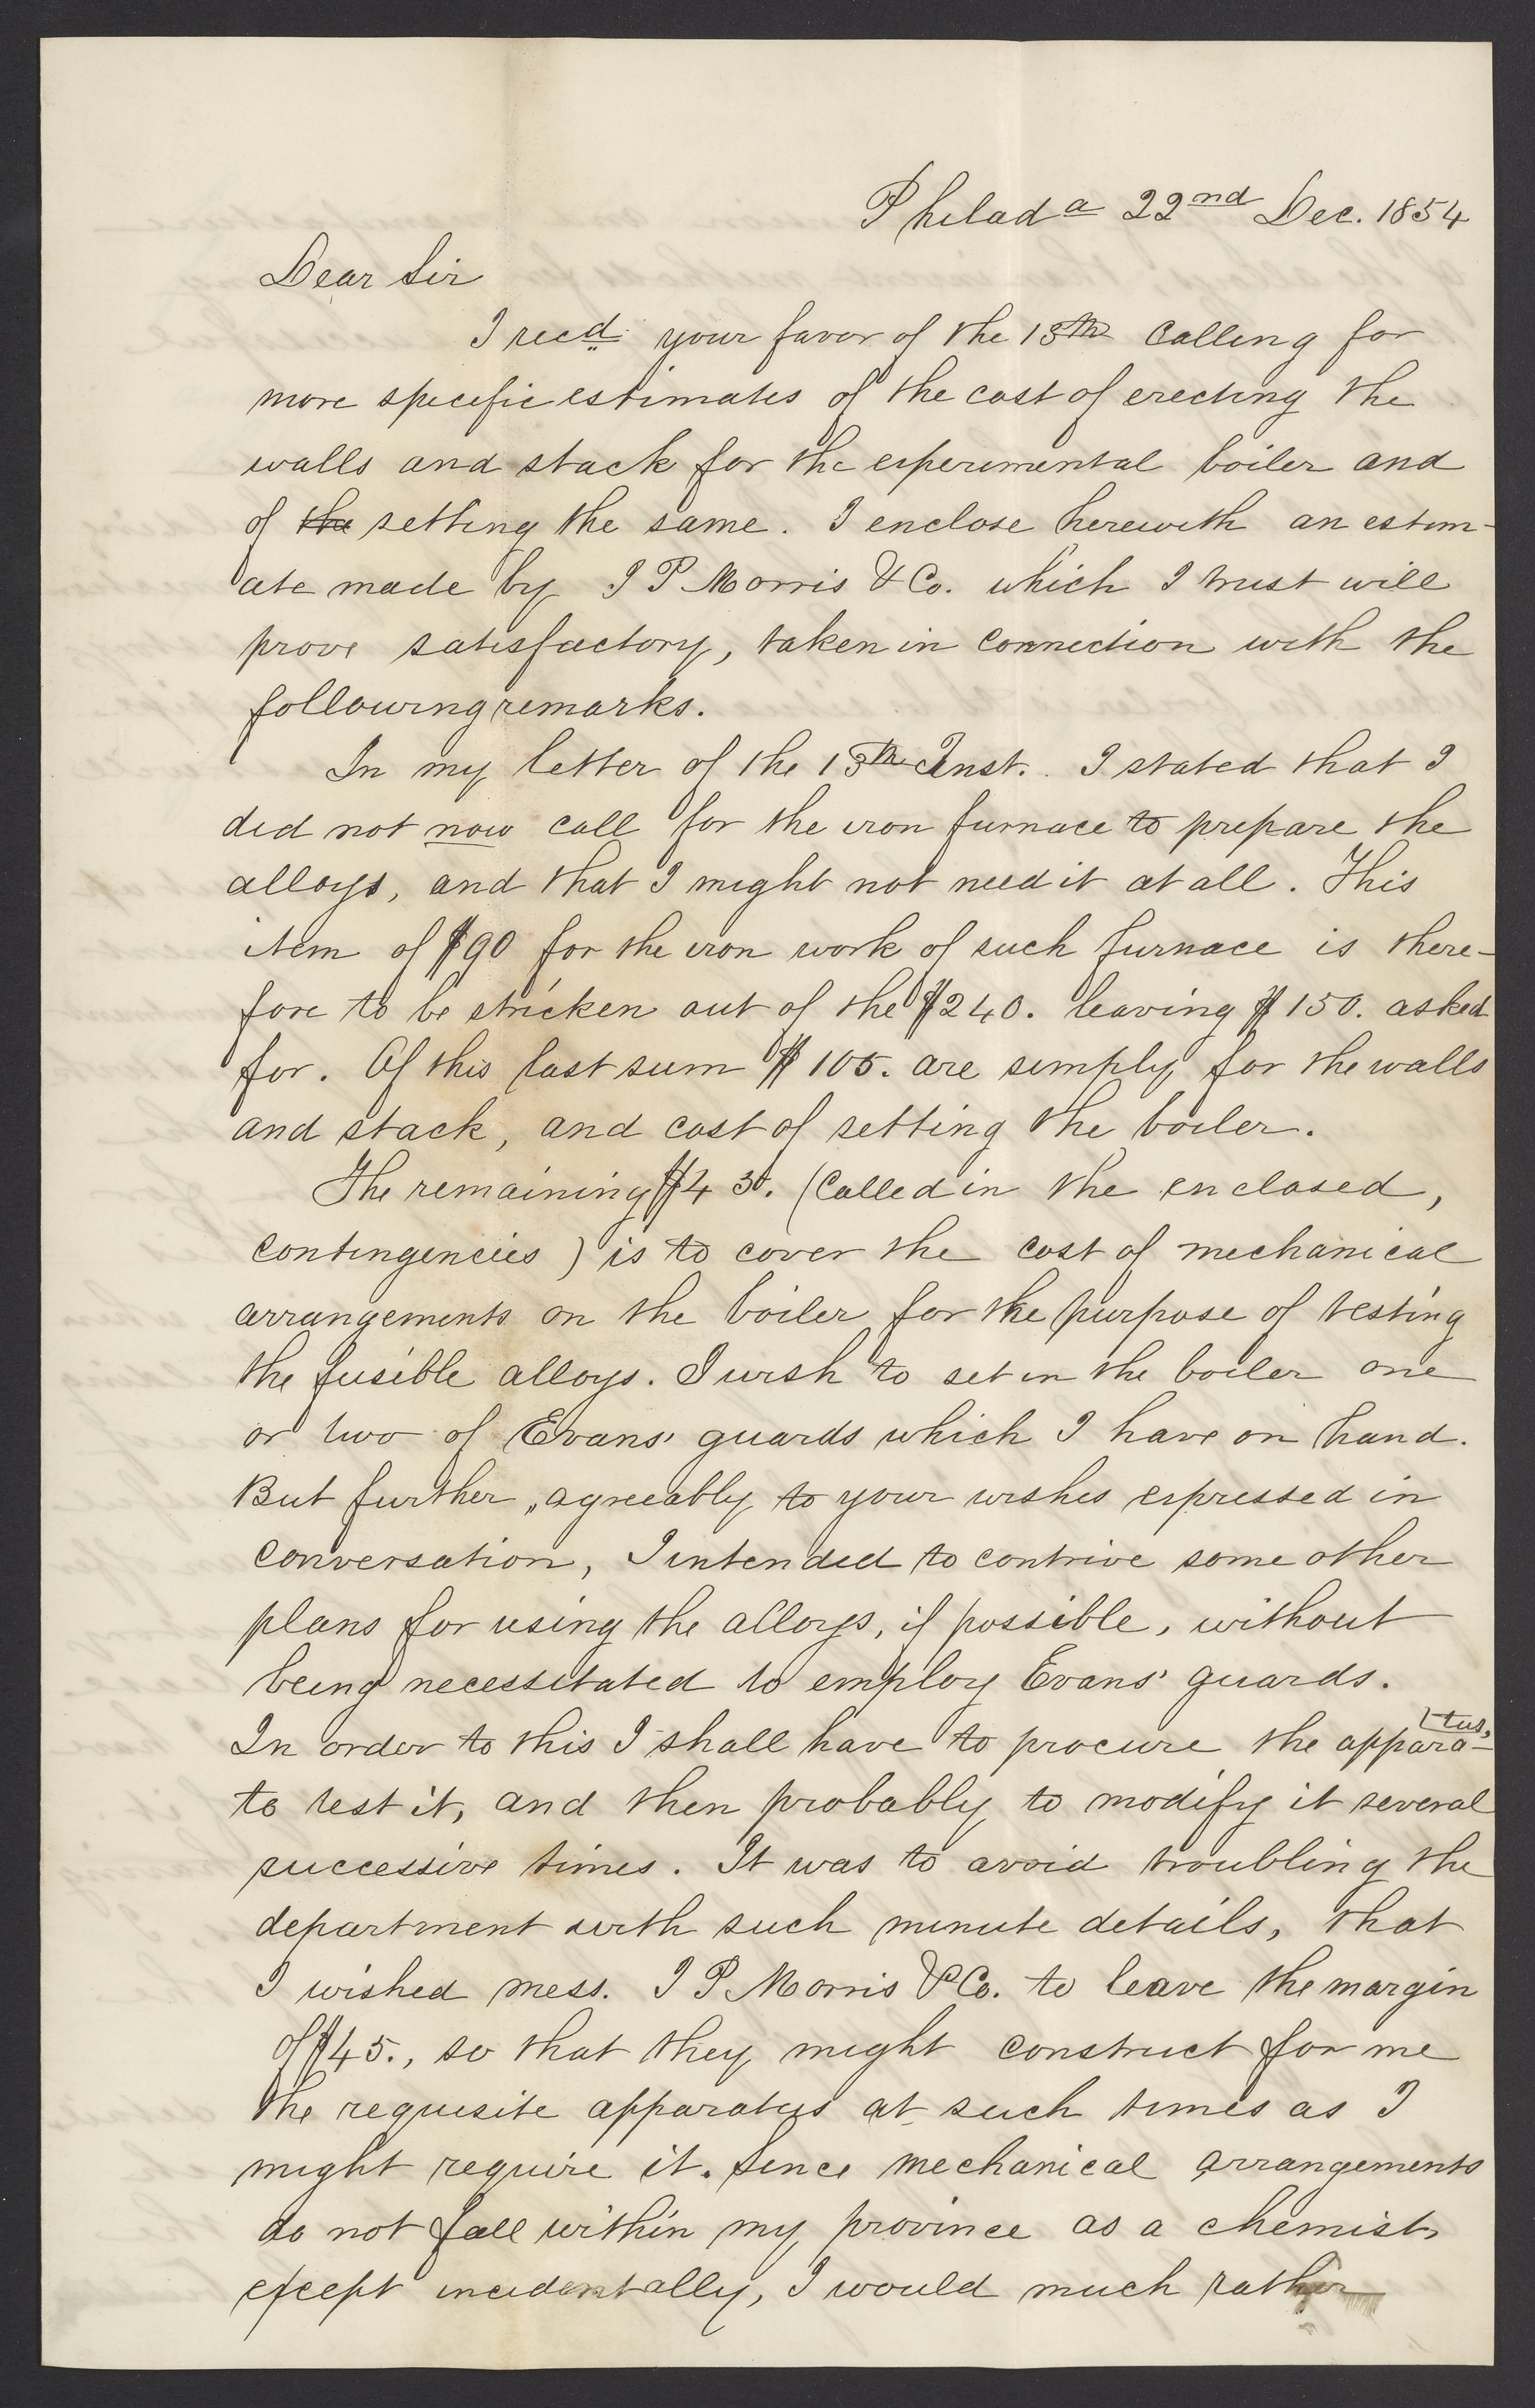 Philada 22nd Dec. 1854
Dear Sir
I recd. your favor of the 15th calling for
more specific estimates of the cost of erecting the
walls and stack for the experimental boiler and
of the setting the same. I enclose herewith an estim-
ate made by I P Morris & Co. which I trust will
prove satisfactory, taken in connection with the
following remarks.
In my letter of the 13th Inst. I stated that I
did not now call for the iron furnace to prepare the
alloys, and that I might not need it at all. This
item of $90 for the iron work of such furnace is there-
fore to be stricken out of the $240. leaving $150. asked
for. Of this last sum $105. are simply for the walls
and stack, and cost of setting the boiler.
The remaining $45. (called in the enclosed,
contingencies) is to cover the cost of mechanical
arrangements on the boiler for the purpose of testing
the fusible alloys. I wish to set in the boiler one
or two of Evans' guards which I have on hand.
But further, agreeably to your wishes expressed in
conversation, I intended to contrive some other
plans for using the alloys, if possible, without
being necessitated to employ Evans' guards.
In order to this I shall have to procure the appara-tus,
to test it, and then probably to modify it several
successive times. It was to avoid troubling the
department with such minute details, that
I wished mess. I P Morris & Co. to leave the margin
of $45., so that they might construct for me
the requisite apparatus at such times as I
might require it. Since mechanical arrangements
do not fall within my province as a chemist,
except incidentally, I would much rather